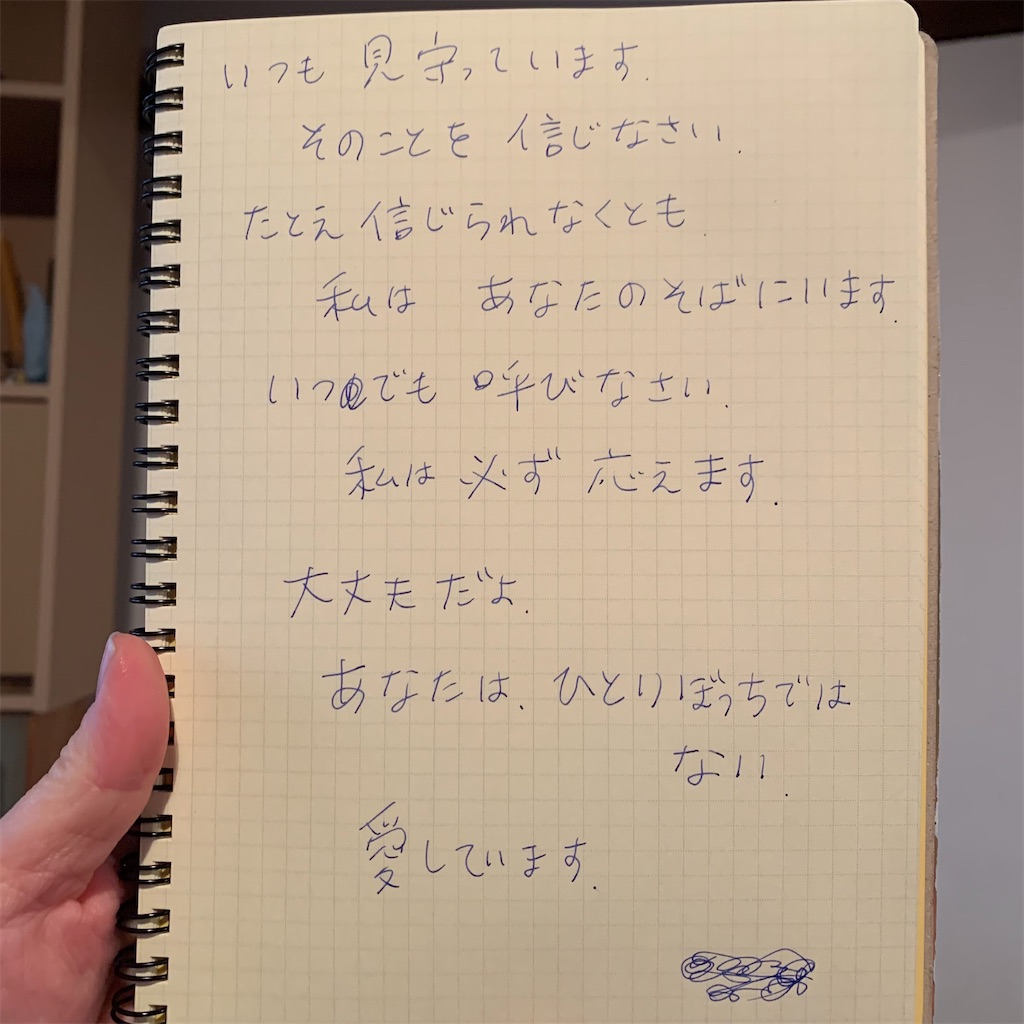 いつも 見守っています.
そのことを 信じなさい.
たとえ 信じられなくとも.
私は あなたのそばにいます.
いつでも 呼びなさい.
私は 必ず 応えます.
大丈夫だよ.
あなたは. ひとりぼっちでは
ない.
愛しています.